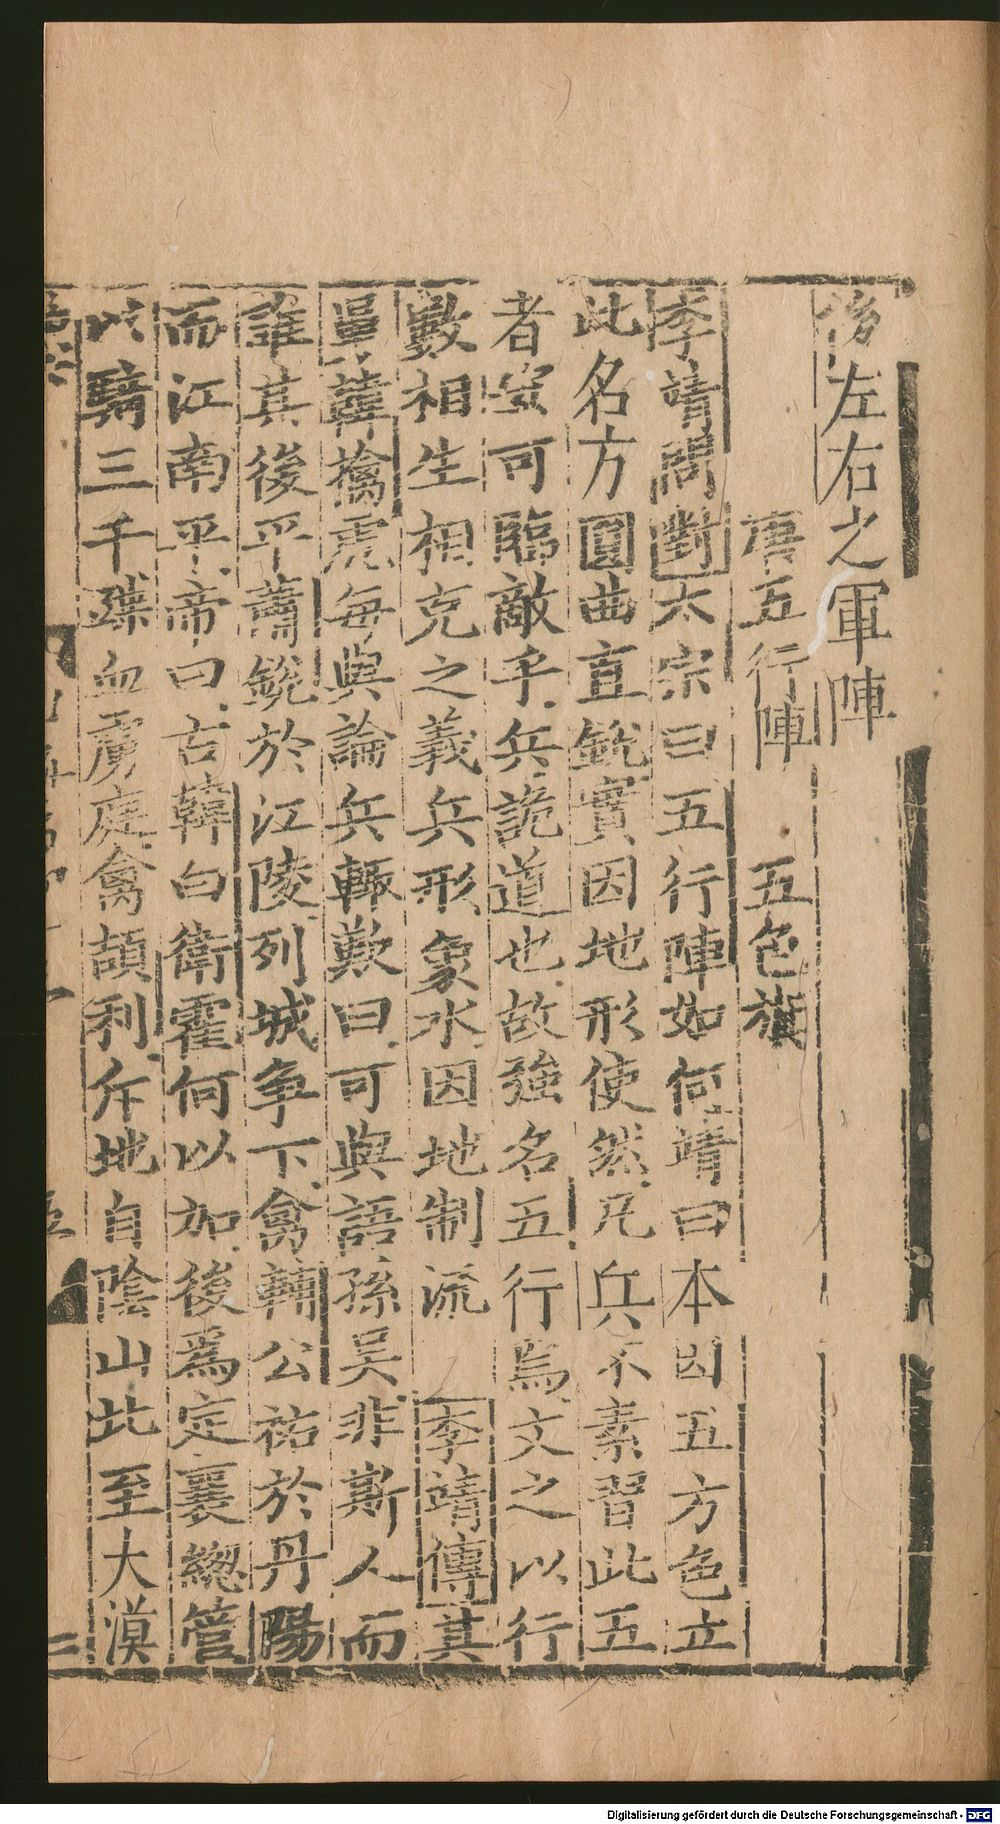 後左右之軍陣
唐五行陣 五色旗
李靖問對太宗曰五行陣如何靖曰本因五方色立
此名方圓曲直銳實因地形使然凡兵不素習此五
者安可臨敵乎兵詭道也故強名五行焉文之以行
數相生相克之義兵形象水因地制流 李靖傳其
舅韓擒虎每與論兵輒歎曰可與語孫吳非斯人而
誰其後平蕭銑於江陵列城爭下禽輔公祏於丹陽
而江南平帝曰古韓白衛霍何以加後為定襄總管
以騎三千蹀血虜庭禽頡利斥地自陰山北至大漠
Digitalisierung gefördert durch die Deutsche Forschungsgemeinschaft - DFG